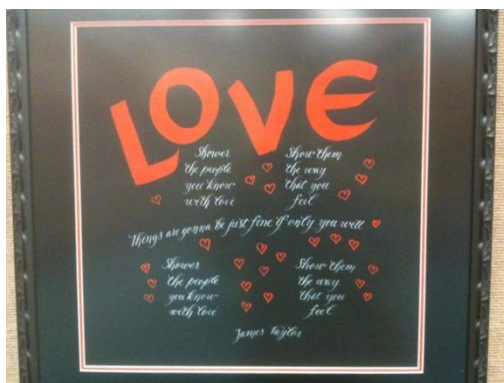 LOVE
Shower
the people
you know
with love
Show them
the way
that you
feel
Things are gonna be just fine if only you will
Shower
the people
you know
with love
Show them
the way
that you
feel
James Taylor